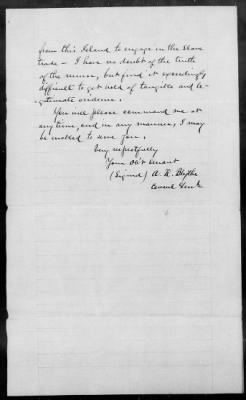 from this Island to engage in the slave
trade – I have no doubt of the truth
of the rumor, but find it exceedingly
difficult to get hold of tangible and le-
gitimate evidence.
You will please command me at
any time, and in any manner, I may
be enabled to serve you.
Very respectfully
Your Ob't Servant
(Signed) A. K. Blythe
Consul Genl